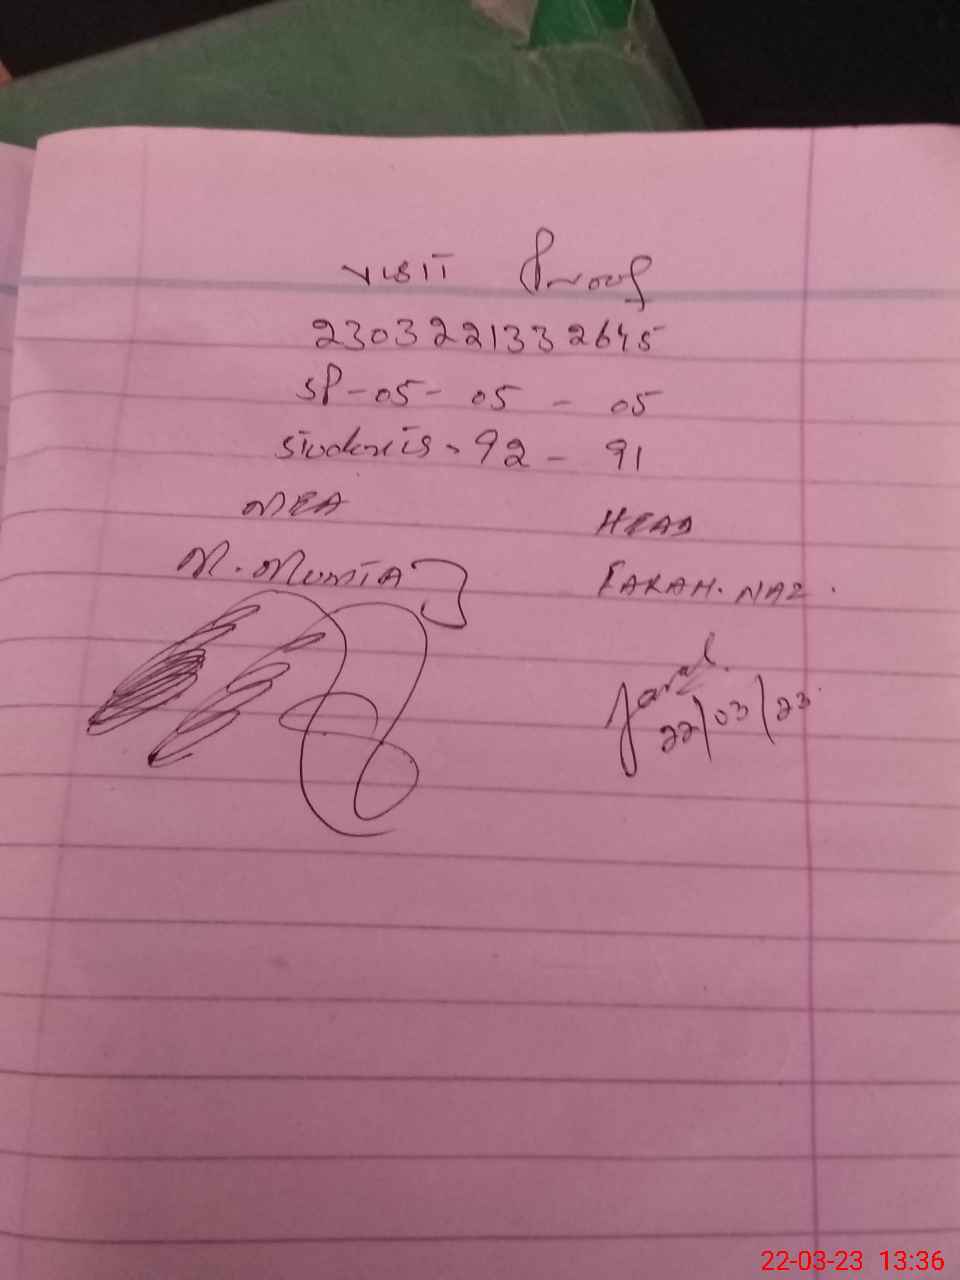 VISIT Proof
2303221332645
SP-05- 05 - 05
Students - 92 - 91
MEA HEAD
M. Mumtaz FARAH. NAZ.
Farah
22/03/23
22-03-23 13:36